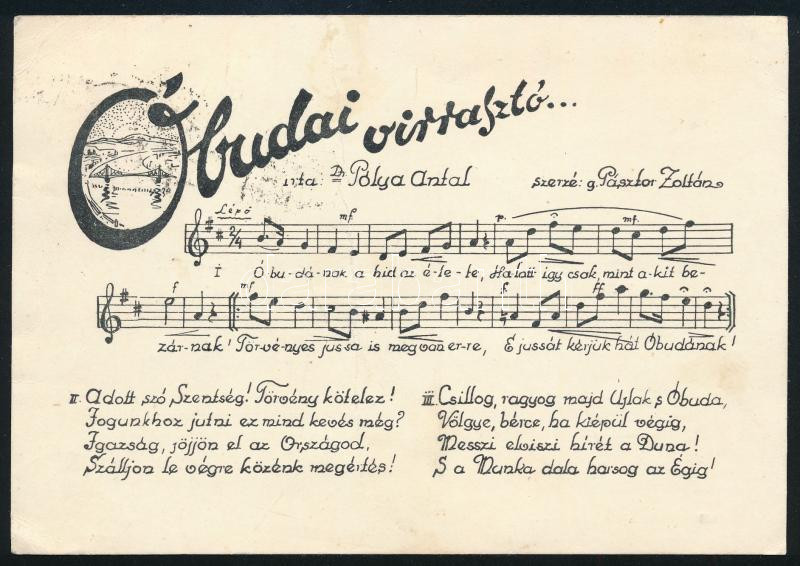 Óbudai virrasztó...
irta: Dr Pólya Antal szerzé: g. Pásztor Zoltán
Lépő mf. p. mf.
2/4
I Ó-bu-dá-nak a hid az é-le-te, Ha-lott igy csak, mint a-kit be-
f mf. f. ff
zár-nak! Tör-vé-nyes jus-sa is megvan er-re, E jussát kérjük hát Óbudának!
II. Adott szó Szentség! Törvény kötelez!
Jogunkhoz jutni ez mind kevés még?
Igazság, jöjjön el az Országod,
Szálljon le végre közénk megértés!
III. Csillog, ragyog majd Újlak s Óbuda,
Völgye, bérce, ha kiépül végig,
Messzi elviszi hírét a Duna!
S a Munka dala harsog az Égig!